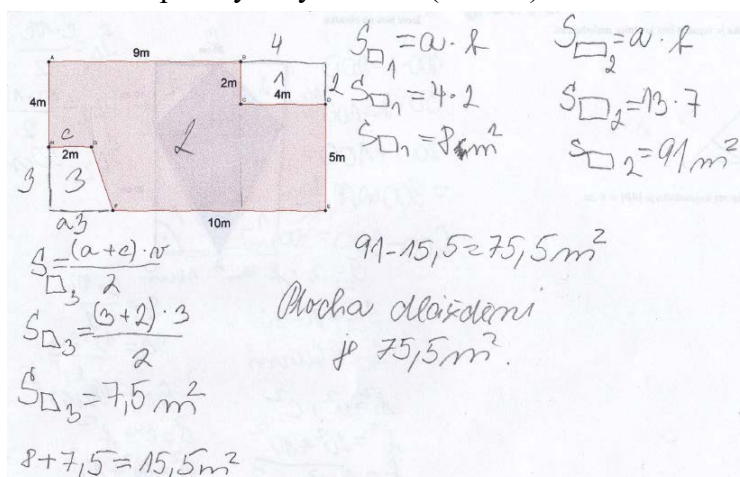 A 9m B 4
4m 2m 1 2
C 4m D
c
2m
2
3 3
5m
a3 10m
S□1 = a · b
S□1 = 4 · 2
S□1 = 8 m²
S▭2 = a · b
S▭2 = 13 · 7
S▭2 = 91 m²
S□3 = (a + c) · v / 2
S□3 = (3 + 2) · 3 / 2
S□3 = 7,5 m²
8 + 7,5 = 15,5 m²
91 - 15,5 = 75,5 m²
Plocha dláždění
je 75,5 m².